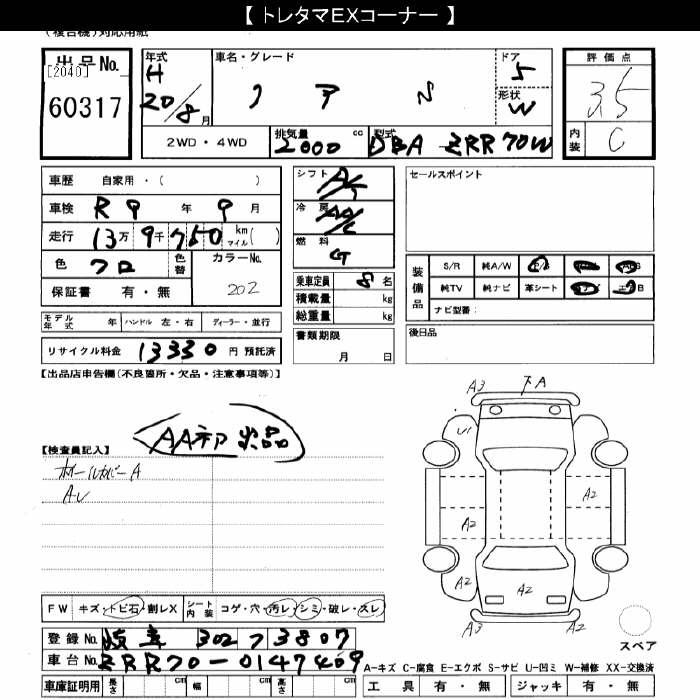 【 トレタマEXコーナー 】
(複合機)対応用紙
出品No.
[2040]
60317
年式 H 20/8月
車名・グレード ノア
ドア 5
形状 W
2WD・4WD
排気量 2000 cc
型式 DBA ZRR70W
評価点 3.5
内装 C
車歴 自家用・( )
車検 R 9 年 9 月
走行 13万9千750 km マイル( )
色 クロ
色替
カラーNo. 202
保証書 有・無
シフト A/T
冷房 AA/C
燃料 G
乗車定員 8 名
積載量 kg
総重量 kg
セールスポイント
装備品
S/R 純A/W P/S
純TV 純ナビ 革シート
ナビ型番:
モデル年式 年 ハンドル 左・右 ディーラー・並行
リサイクル料金 13330 円 預託済
書類期限
月 日
後日品
【出品店申告欄(不良箇所・欠品・注意事項等)】
AA初出品
【検査員記入】
ホイールカバーA
AU
A3 下A
U1
A2
A2
A2 A2 A2
A3
スペア
FW キズ・トビ石・割レX シート内装 コゲ・穴・汚レ・シミ・破レ・スレ
登録No. 岐阜 302 フ 3807
車台No. ZRR70-0147409
A-キズ C-腐食 E-エクボ S-サビ U-凹ミ W-補修 XX-交換済
車庫証明用 長さ cm 幅 cm 高さ cm
工具 有・無 ジャッキ 有・無